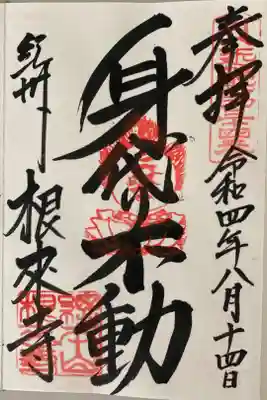 奉拝
令和四年八月十四日
身代り不動
紀州
根来寺